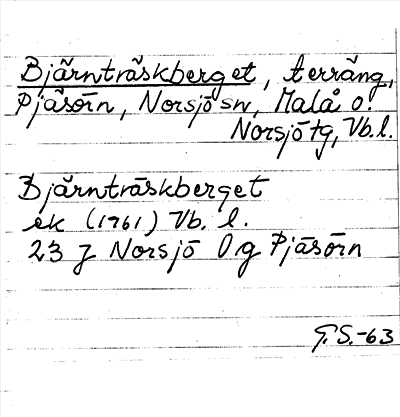 Bjärnträskberget, terräng,
Pjäsörn, Norsjö sn, Malå o.
Norsjö tg, Vb. l.
Bjärnträskberget
ek (1961) Vb. l.
23 J Norsjö 0 g Pjäsörn
G.S.-63